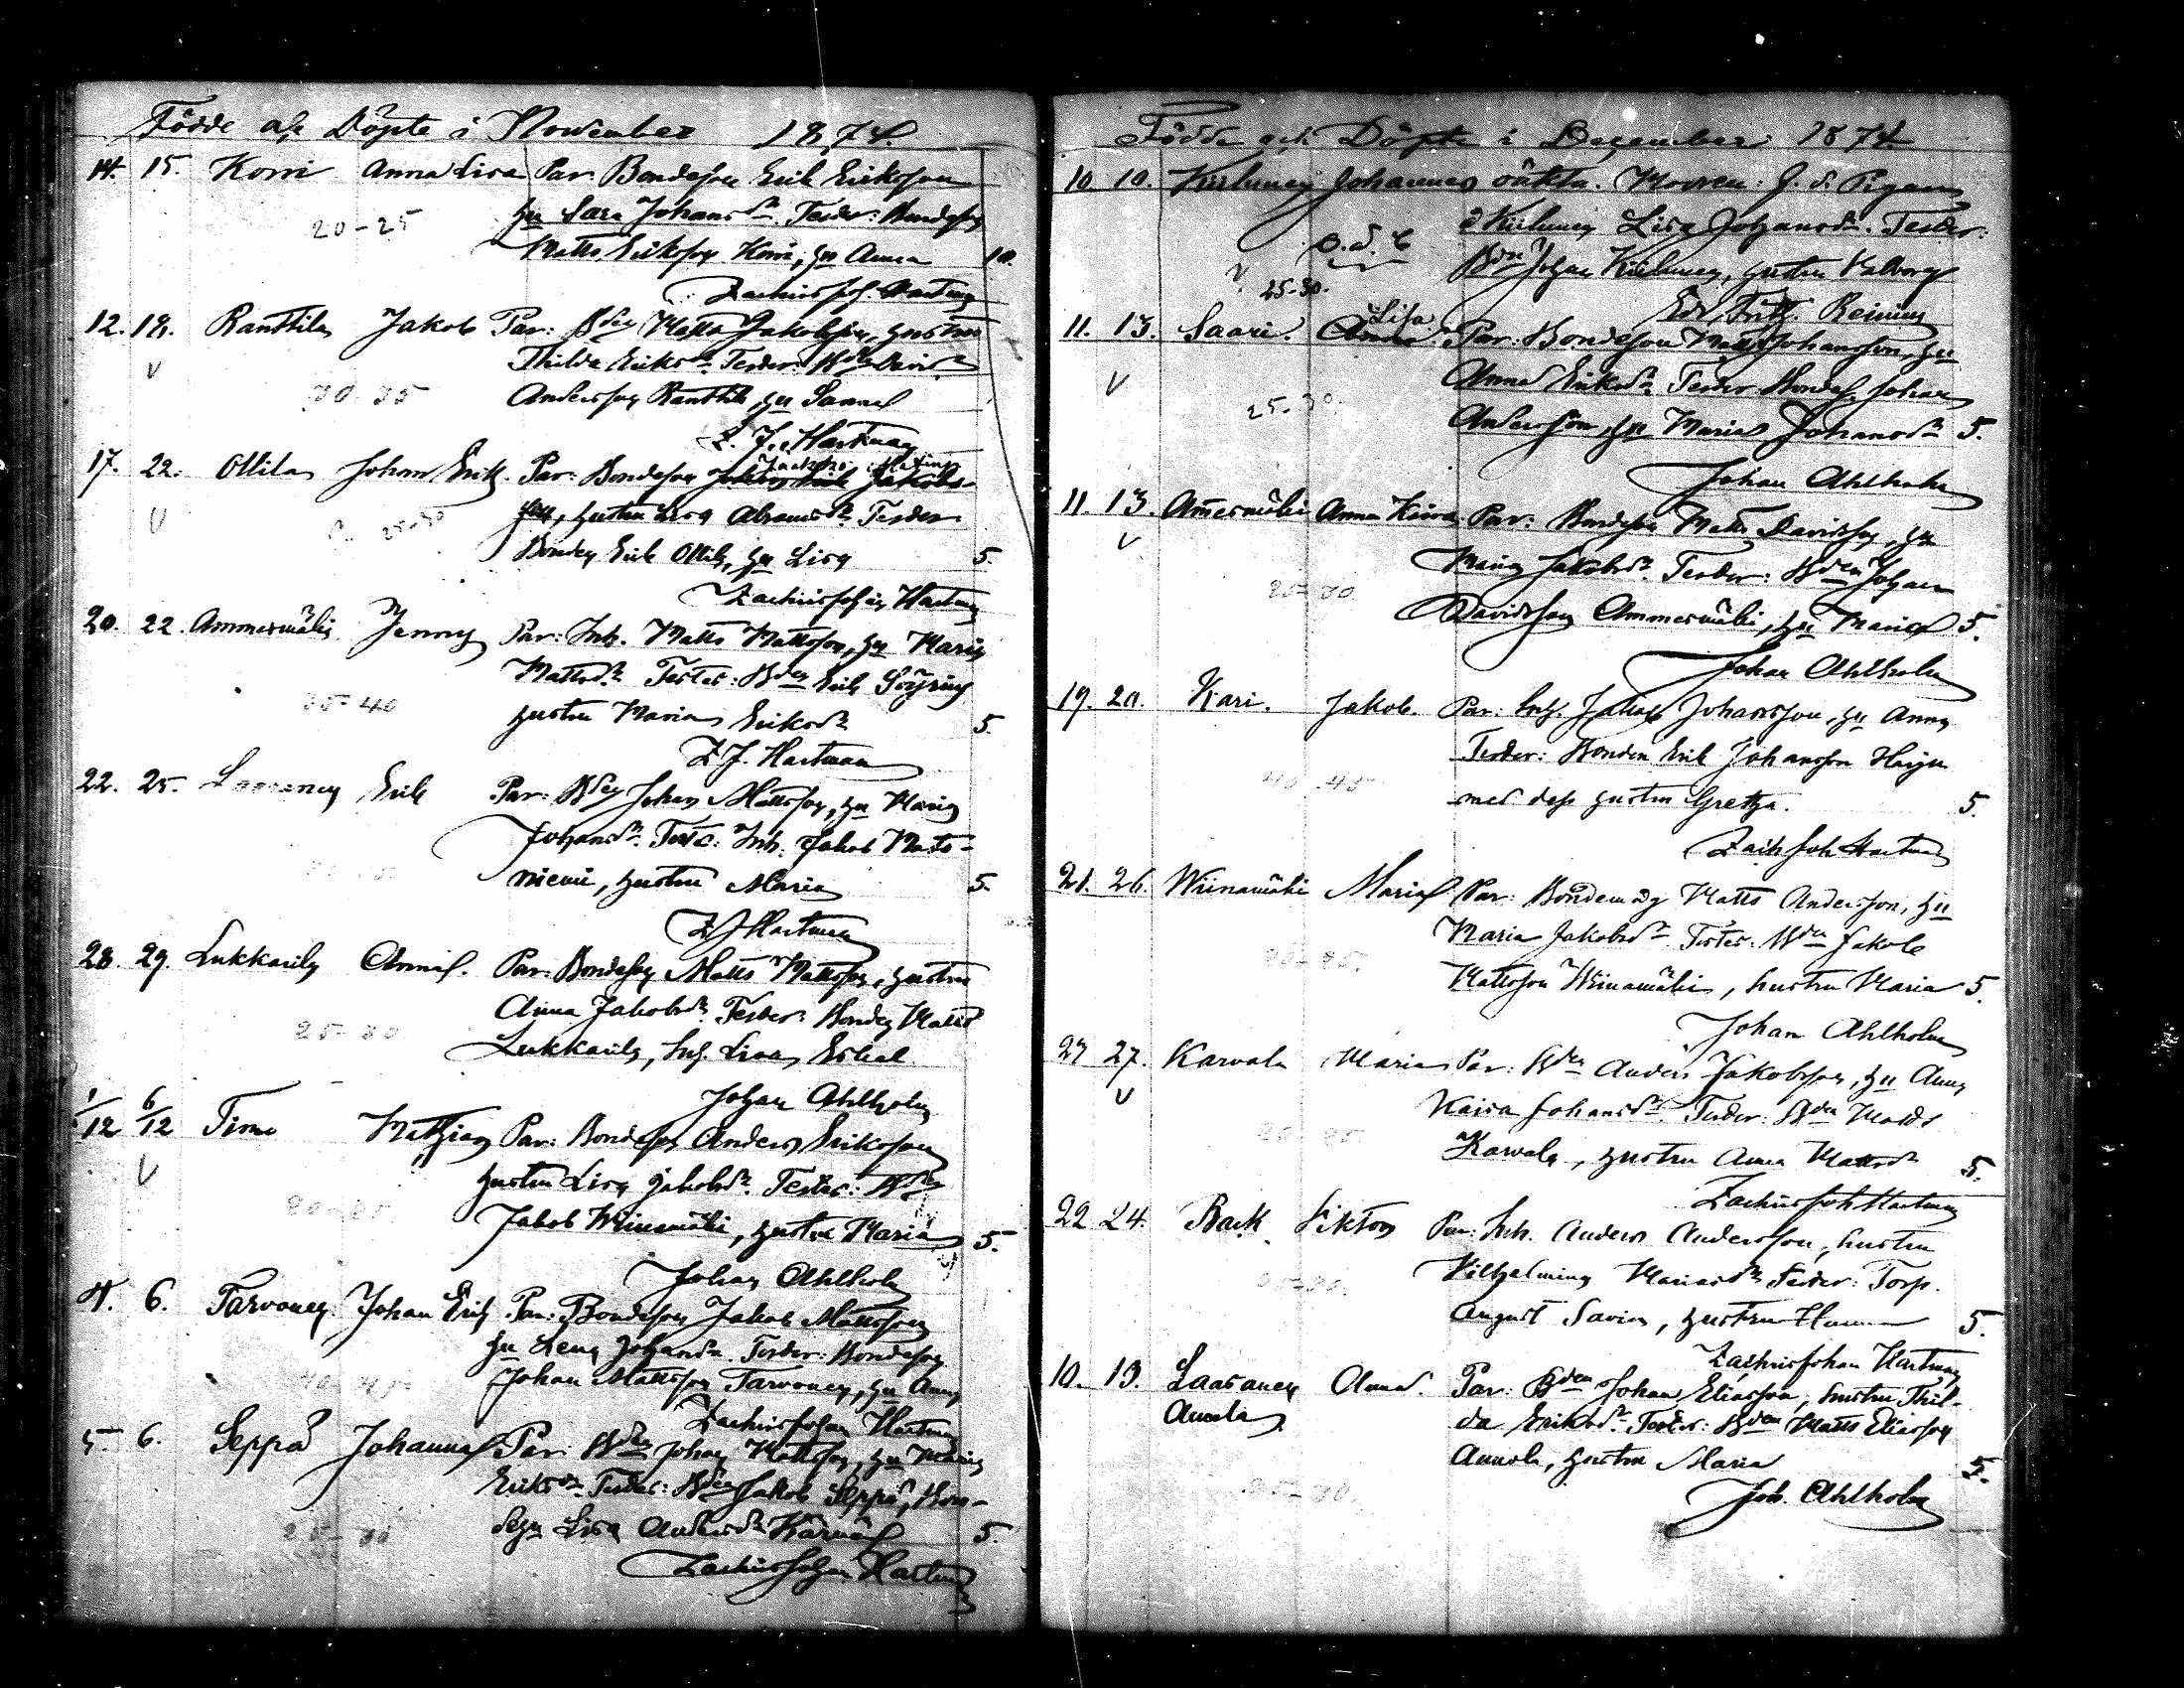 Födde och Döpte i November 1874.
14. 15. Korri Anna Lisa Par. Bondeson Erik Eriksson
hu Sara Johansdr. Testes: Bondeson
20-25
Matts Eriksson Korri, hu Anna 10.
Zachris Joh. Hartman
12. 18. Ranttila Jakob Par: Bden Matts Jakobsson, hustru
Thilda Eriksdr. Testes: Bden David
V 30-35 Andersson Ranttila, hu Sanna
Z. J. Hartman
17. 22. Ollila Johan Erik. Par: Bondeson
hustru Lisa Abramsdr. Testes:
V 25-30
Bonden Erik Ollila, hu Lisa 5.
Zachris Johan Hartman
20. 22. Ammesmäki Jenny Par: Inh. Matts Mattsson, hu Maria
Mattsdr. Testes: Bden Erik
35-40 hustru Maria Eriksdr 5.
Z. J. Hartman
22. 25. Laasanen Erik Par: Bden Johan Mattsson, hu Maria
Johansdr. Testes: Inh. Jakob Mato-
niemi, hustru Maria 5.
Z J Hartman
28. 29. Lukkarila Anna. Par: Bondeson Matts Mattsson, hustru
Anna Jakobsdr. Testes: Bonden Matts
25-30
Lukkarila, Inh. Lisa
Johan Ahlholm
1/12 6/12 Timo Mathias Par: Bondeson Anders Eriksson
V hustru Lisa Jakobsdr. Testes: Bden
Jakob Wiinamäki, hustru Maria 5.
Johan Ahlholm
4. 6. Tarvonen Johan Erik Par: Bondeson Jakob Mattsson
hu Lena Johansdr. Testes: Bondeson
40-45 Johan Mattsson Tarvonen, hu Anna
Zachris Johan Hartman
5. 6. Seppä Johanna Par: Bden Johan Mattsson, hu Maria
Eriksdr. Testes: Bden Jakob Seppä, Bon-
25-30 Lisa Andersdr Kärnä 5.
Zachris Johan Hartman
Födde och Döpte i December 1874
10 10. Kiihunen Johannes oäkta. Modren: J. d. Pigan
Kiihunen Lisa Johansdr. Testes:
V Bden Johan Kiihunen, hustru Valborg
25-30.
11. 13. Saari. Lisa Par: Bondeson Matts Johansson, hu
V Anna Eriksdr. Testes Bondes. Johan
25-30
Andersson, hu Maria Johansdr 5.
Johan Ahlholm
11. 13. Ammesmäki Anna Kaisa Par: Bondeson Matts Davidsson, hu
V Maria Jakobsdr. Testes: Bden Johan
25-30.
Davidsson Ammesmäki, hu Maria 5.
Johan Ahlholm
19. 20. Kari. Jakob. Par: Inh. Jakob Johansson, hu Anna
Testes: Bonden Erik Johansson
40-45 med dess hustru Gretha. 5.
Zach Joh Hartman
21. 26. Wiinamäki Maria Par: Bondemåg Matts Andersson, hu
Maria Jakobsdr. Testes: Bden Jakob
Mattsson Wiinamäki, hustru Maria 5.
Johan Ahlholm
27 27. Karvala Maria Par: Bden Anders Jakobsson, hu Anna
V Kaisa Johansdr. Testes: Bden Matts
Karvala, hustru Anna Mattsdr 5.
Zachris Joh Hartman
22 24. Back Viktor Par: Inh. Anders Andersson, hustru
Vilhelmina Mariasdr. Testes: Torp.
August Savin, hustru 5.
Zachris Johan Hartman
10. 13. Laasanen Anna. Par: Bden Johan Eliasson, hustru Thil-
Annala da Eriksdr. Testes: Bden Matts Eliasson
Annala, hustru Maria 5.
Joh. Ahlholm